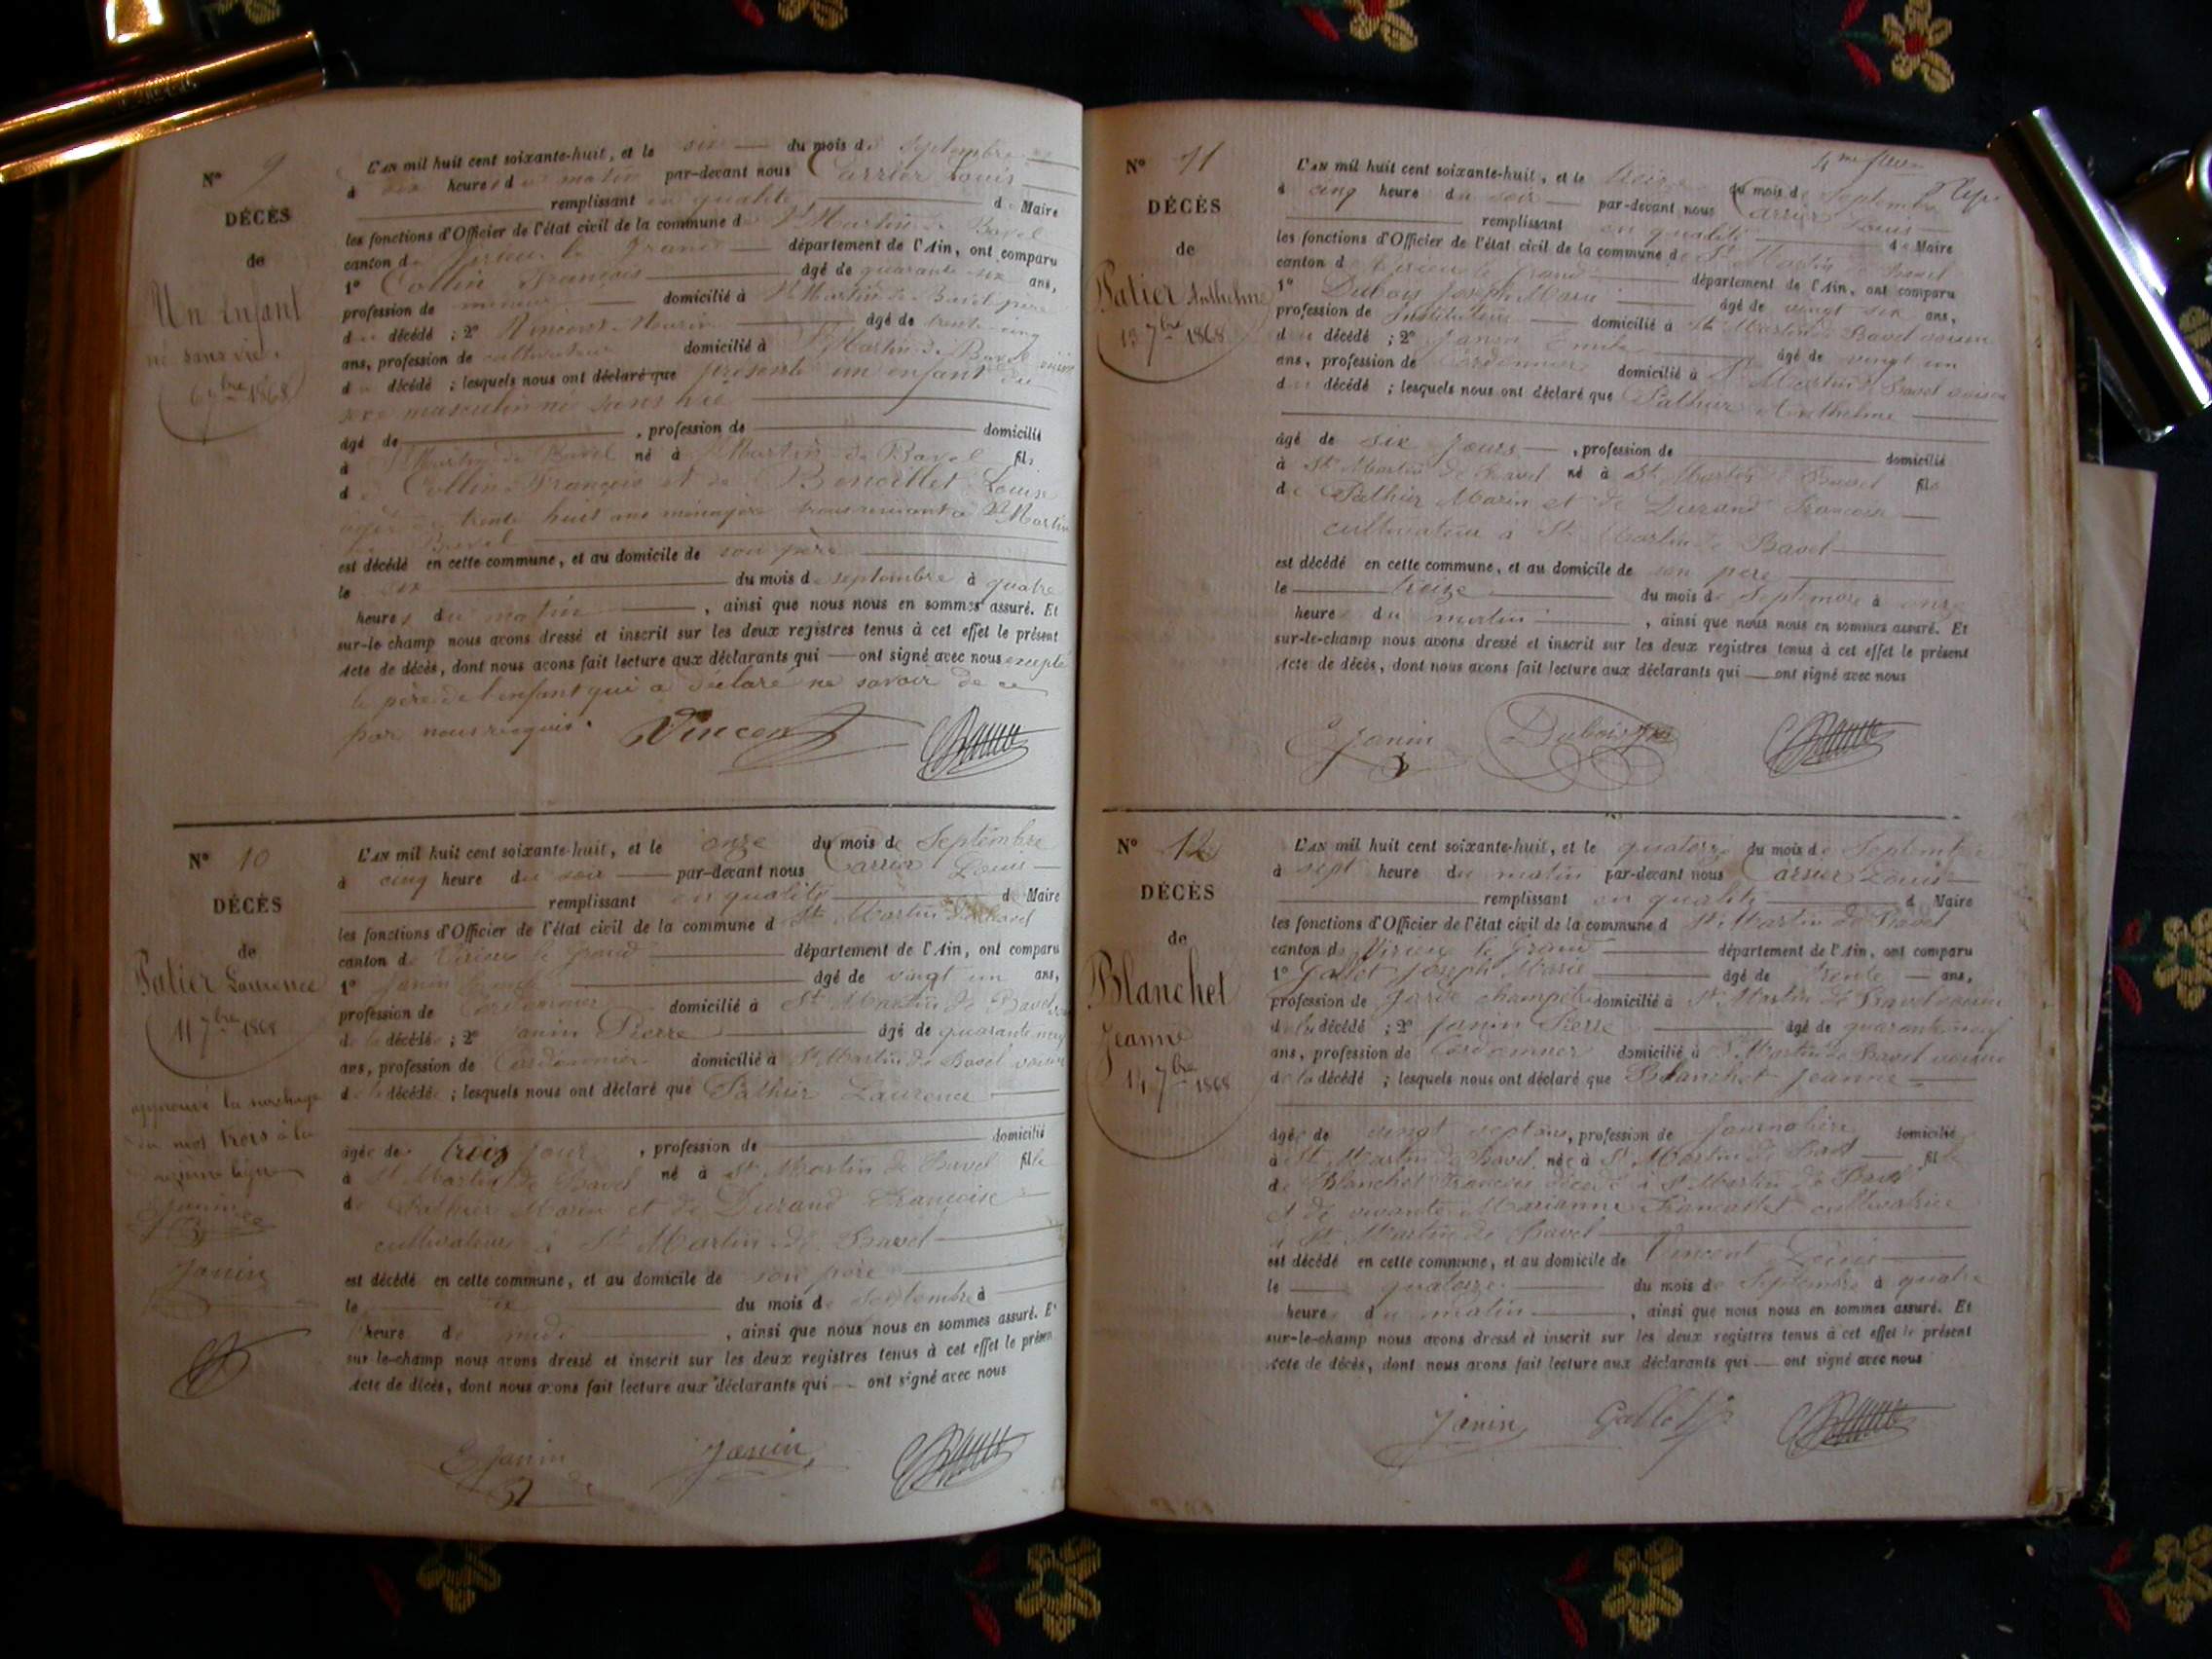 N° 9
DÉCÈS
de
Un Enfant
né sans vie.
6 7bre 1868
L'AN mil huit cent soixante-huit, et le six du mois de Septembre
à six heures du matin par-devant nous Carrier Louis
remplissant en qualité de Maire
les fonctions d'Officier de l'état civil de la commune de St Martin de Bavel
canton de Virieu le Grand département de l'Ain, ont comparu
1° Collin François âgé de quarante six ans,
profession de domicilié à St Martin de Bavel père
du décédé ; 2° Vincent âgé de trente-cinq
ans, profession de cultivateur domicilié à St Martin de Bavel voisin
du décédé ; lesquels nous ont déclaré que présenté un enfant du
sexe masculin né sans vie
âgé de , profession de domicilié
à St Martin de Bavel né à St Martin de Bavel fils
de Collin François et de Benoillet Louise
âgée de trente huit ans ménagère demeurant à St Martin
de Bavel
est décédé en cette commune, et au domicile de son père
le six du mois de septembre à quatre
heures du matin , ainsi que nous nous en sommes assuré. Et
sur-le champ nous avons dressé et inscrit sur les deux registres tenus à cet effet le présent
Acte de décès, dont nous avons fait lecture aux déclarants qui ont signé avec nous excepté
le père de l'enfant qui a déclaré ne savoir de ce
par nous requis.
Vincent
N° 10
DÉCÈS
de
Patier Laurence
11 7bre 1868
approuvé la surcharge
du mot trois à la
ligne
Janin
Janin
L'AN mil huit cent soixante-huit, et le onze du mois de Septembre
à cinq heure du soir par-devant nous Carrier Louis
remplissant en qualité de Maire
les fonctions d'Officier de l'état civil de la commune d St Martin de Bavel
canton de Virieu le Grand département de l'Ain, ont comparu
1° Janin Emile âgé de vingt un ans,
profession de Cordonnier domicilié à St Martin de Bavel
de la décédée ; 2° Janin Pierre âgé de quarante neuf
ans, profession de Cordonnier domicilié à St Martin de Bavel voisin
de la décédée ; lesquels nous ont déclaré que Pathier Laurence
âgée de trois jour , profession de domicilié
à St Martin de Bavel né à St Martin de Bavel fille
de Pathier Marin et de Durand Françoise
cultivateurs à St Martin de Bavel
est décédé en cette commune, et au domicile de son père
le du mois de Septembre à
heure de midi , ainsi que nous nous en sommes assuré. Et
sur-le-champ nous avons dressé et inscrit sur les deux registres tenus à cet effet le présent
Acte de décès, dont nous avons fait lecture aux déclarants qui ont signé avec nous
E Janin Janin
N° 11
DÉCÈS
de
Patier Anthelme
13 7bre 1868
L'AN mil huit cent soixante-huit, et le treize du mois de Septembre
à cinq heure du soir par-devant nous Carrier Louis
remplissant en qualité de Maire
les fonctions d'Officier de l'état civil de la commune de St Martin de Bavel
canton d Virieu le Grand département de l'Ain, ont comparu
1° Dubois Joseph Marie âgé de vingt six ans,
profession de Instituteur domicilié à St Martin de Bavel voisin
du décédé ; 2° Janin Emile âgé de vingt un
ans, profession de Cordonnier domicilié à St Martin de Bavel voisin
du décédé ; lesquels nous ont déclaré que Pathier Anthelme
âgé de six jours , profession de domicilié
à St Martin de Bavel né à St Martin de Bavel fils
de Pathier Marin et de Durand Françoise
cultivateurs à St Martin de Bavel
est décédé en cette commune, et au domicile de son père
le treize du mois de Septembre à onze
heures du matin , ainsi que nous nous en sommes assuré. Et
sur-le-champ nous avons dressé et inscrit sur les deux registres tenus à cet effet le présent
Acte de décès, dont nous avons fait lecture aux déclarants qui ont signé avec nous
E Janin Dubois
N° 12
DÉCÈS
de
Blanchet
Jeanne
14 7bre 1868
L'AN mil huit cent soixante-huit, et le quatorze du mois de Septembre
à sept heure du matin par-devant nous Carrier Louis
remplissant en qualité de Maire
les fonctions d'Officier de l'état civil de la commune d St Martin de Bavel
canton de Virieu le Grand département de l'Ain, ont comparu
1° Gallet Joseph Marie âgé de trente ans,
profession de Garde champêtre domicilié à St Martin de Bavel voisin
de la décédé ; 2° Janin Pierre âgé de quarante neuf
ans, profession de Cordonnier domicilié à St Martin de Bavel voisin
de la décédé ; lesquels nous ont déclaré que Blanchet Jeanne
âgée de vingt sept ans, profession de Journalière domicilié
à St Martin de Bavel, née à St Martin de Bavel fille
de Blanchet François décédé à St Martin de Bavel
et de vivante Marianne Francallet cultivatrice
à St Martin de Bavel
est décédé en cette commune, et au domicile de Vincent Louis
le quatorze du mois de Septembre à quatre
heure du matin , ainsi que nous nous en sommes assuré. Et
sur-le-champ nous avons dressé et inscrit sur les deux registres tenus à cet effet le présent
Acte de décès, dont nous avons fait lecture aux déclarants qui ont signé avec nous
Janin Gallet